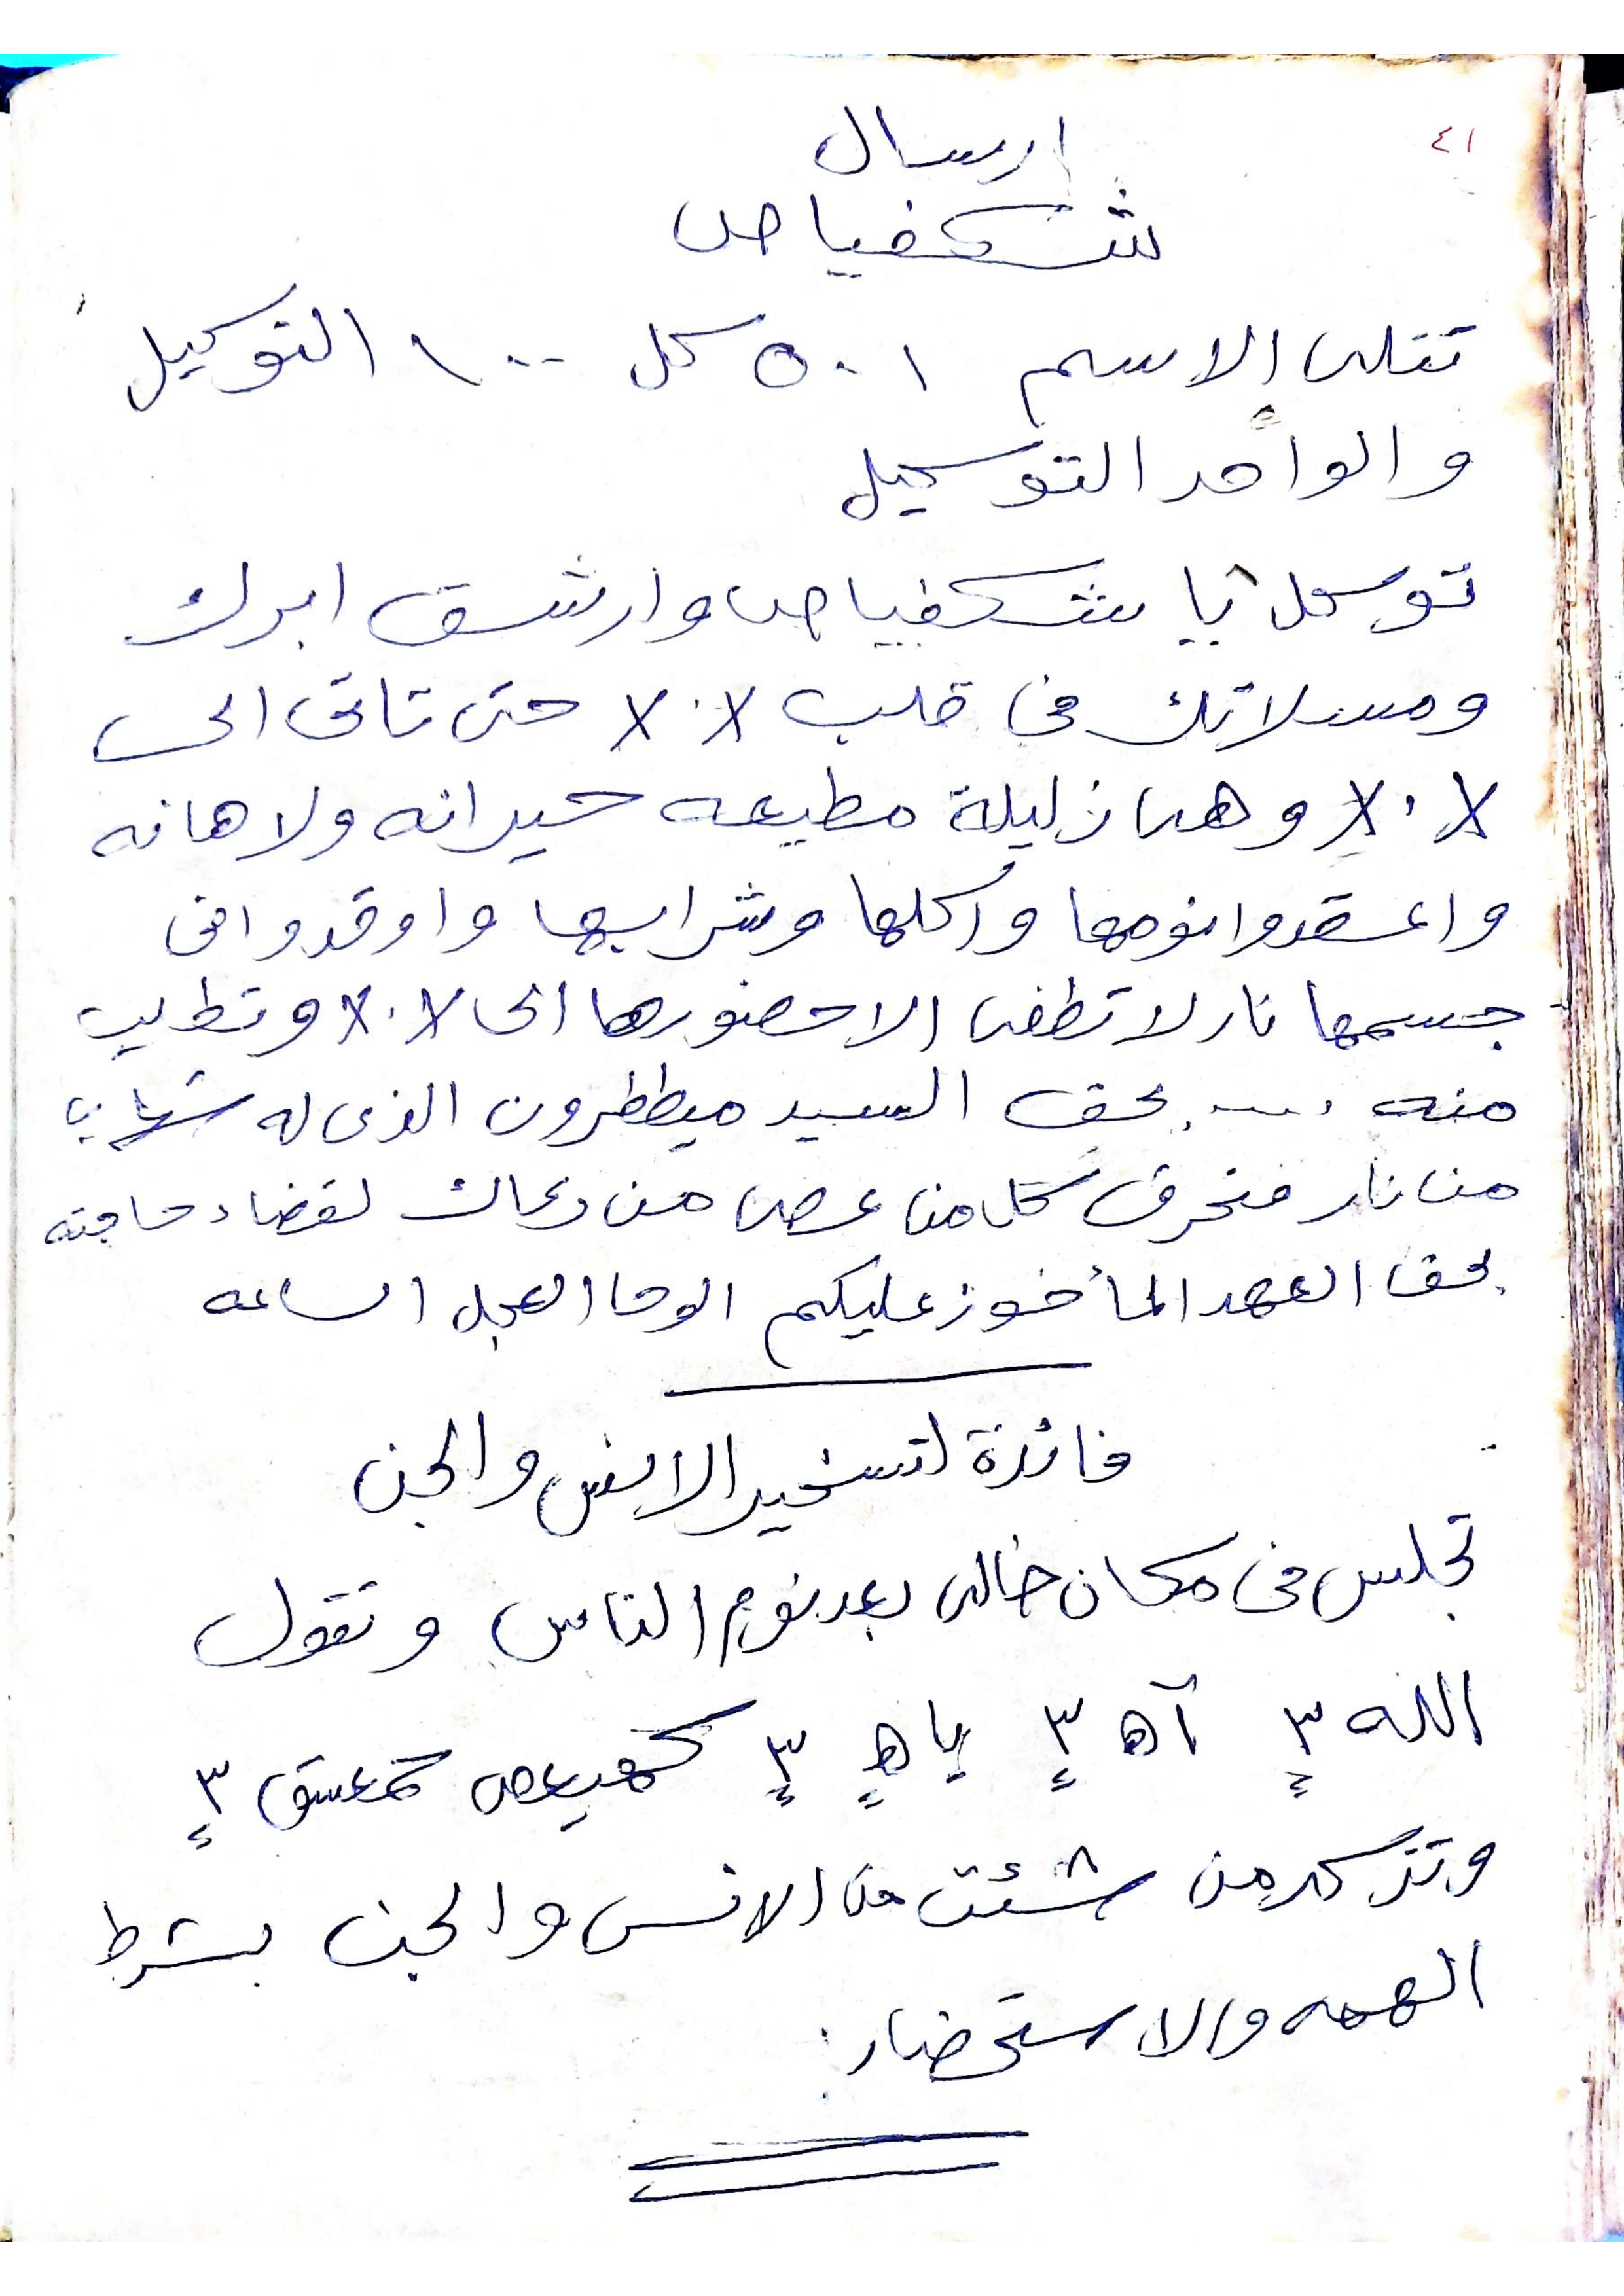 ٤١
ارسال
شكفياص
تتلى الاسم ٥٠١ كل ١٠٠ التوكيل
والواحد التوكيل
توكل يا شكفياص وارشق ابرك
ومسلاتك فى قلب X٠X حتى تاتى الى
X٠X وهى زليلة مطيعه حيرانه ولاهانه
واعقدوا نومها واكلها وشرابها واوقدوا فى
جسمها نار لا تطفى الا حضورها الى X٠X وتطلب
منه .... بحق السيد ميططرون الذى له شهاب
من نار فتحرق كل من عصى من دعاك لقضاء حاجته
بحق العهد المأخوز عليكم الوحا العجل الساعه
فائدة لتسخير الانس والجن
تجلس فى مكان خالى بعد نوم الناس وتقول
الله ٣ آه ٣ ياه ٣ كهيعص حمعسق ٣
وتزكر من شئت من الانس والجن بشرط
الهمه والاستحضار